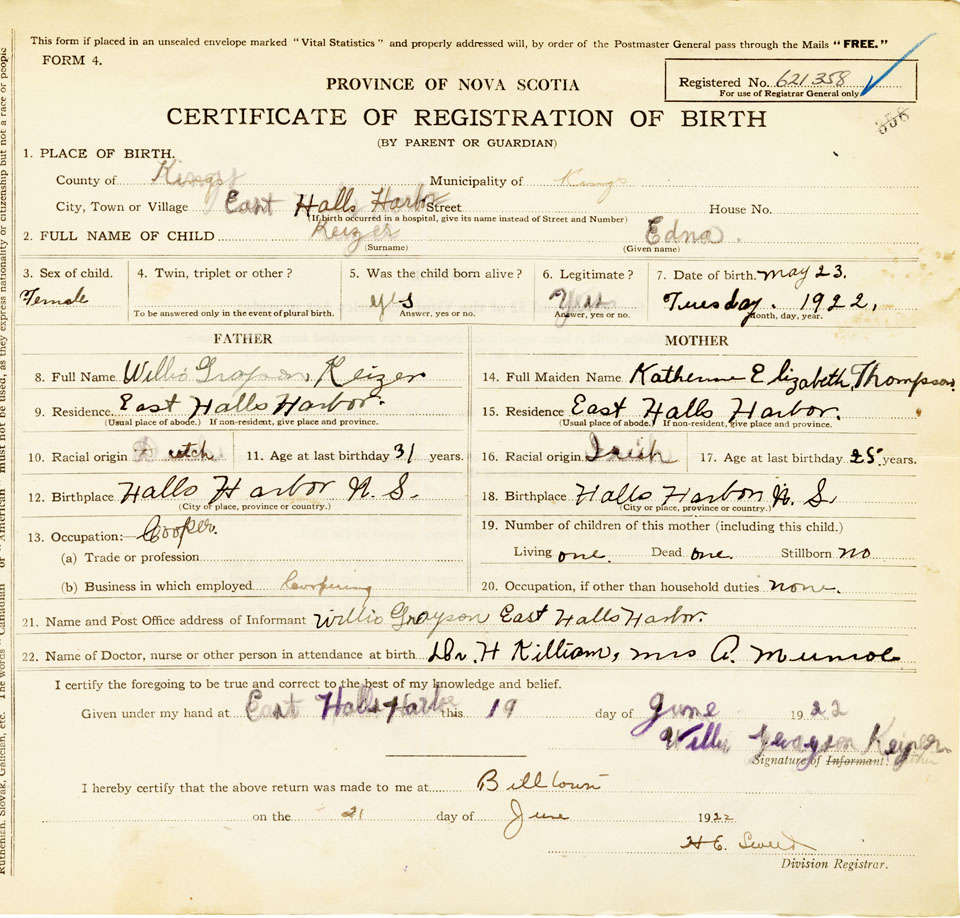 This form if placed in an unsealed envelope marked "Vital Statistics" and properly addressed will, by order of the Postmaster General pass through the Mails "FREE."
FORM 4.
PROVINCE OF NOVA SCOTIA
Registered No. 621358
For use of Registrar General only
358
CERTIFICATE OF REGISTRATION OF BIRTH
(BY PARENT OR GUARDIAN)
1. PLACE OF BIRTH.
County of Kings Municipality of Kings
City, Town or Village East Halls Harbor Street House No.
(If birth occurred in a hospital, give its name instead of Street and Number)
2. FULL NAME OF CHILD Keizer Edna.
(Surname) (Given name)
3. Sex of child. 4. Twin, triplet or other? 5. Was the child born alive? 6. Legitimate? 7. Date of birth. May 23.
Female yes Yes Tuesday. 1922.
To be answered only in the event of plural birth. Answer, yes or no. Answer, yes or no. Month, day, year.
FATHER MOTHER
8. Full Name Willis Grayson Keizer 14. Full Maiden Name Katherine Elizabeth Thompson.
9. Residence East Halls Harbor. 15. Residence East Halls Harbor.
(Usual place of abode.) If non-resident, give place and province. (Usual place of abode.) If non-resident, give place and province.
10. Racial origin Dutch 11. Age at last birthday 31 years. 16. Racial origin Irish 17. Age at last birthday 25 years.
12. Birthplace Halls Harbor N. S. 18. Birthplace Halls Harbor N. S.
(City or place, province or country.) (City or place, province or country.)
13. Occupation:— Cooper. 19. Number of children of this mother (including this child.)
(a) Trade or profession Living one. Dead one. Stillborn no
(b) Business in which employed Coopering 20. Occupation, if other than household duties none.
21. Name and Post Office address of Informant Willis Grayson East Halls Harbor.
22. Name of Doctor, nurse or other person in attendance at birth Dr. H Killiam, Mrs A. Munroe
I certify the foregoing to be true and correct to the best of my knowledge and belief.
Given under my hand at East Halls Harbor this 19 day of June 1922
Willis Grayson Keizer
Signature of Informant
I hereby certify that the above return was made to me at Billtown
on the 21 day of June 1922
H C. Sweet
Division Registrar.
Ruthenian, Slovak, Galician, etc. The words "Canadian" or "American" must not be used, as they express nationality or citizenship but not a race or people